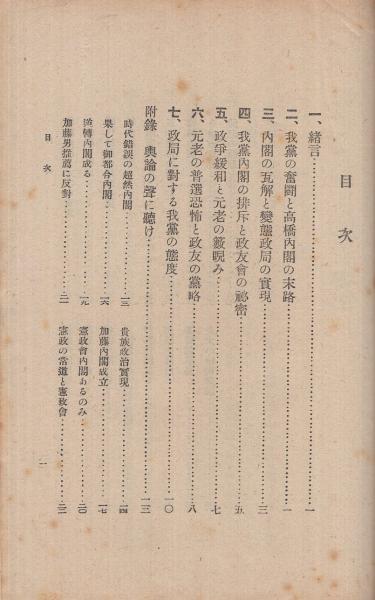 目次
一、緒言…………一
二、我黨の奮鬪と高橋內閣の末路…………一
三、內閣の瓦解と變態政局の實現…………三
四、我黨內閣の排斥と政友會の祕密…………五
五、政爭緩和と元老の藪睨み…………七
六、元老の普選恐怖と政友の黨略…………八
七、政局に對する我黨の態度…………一〇
附錄 輿論の聲に聽け…………一三
時代錯誤の超然內閣…………一三
貴族政治實現…………一四
果して御都合內閣…………一六
加藤內閣成立…………一七
逆轉內閣成る…………一九
憲政會內閣あるのみ…………二〇
加藤男推薦に反對…………二一
憲政の常道と憲政會…………二二
目次
一